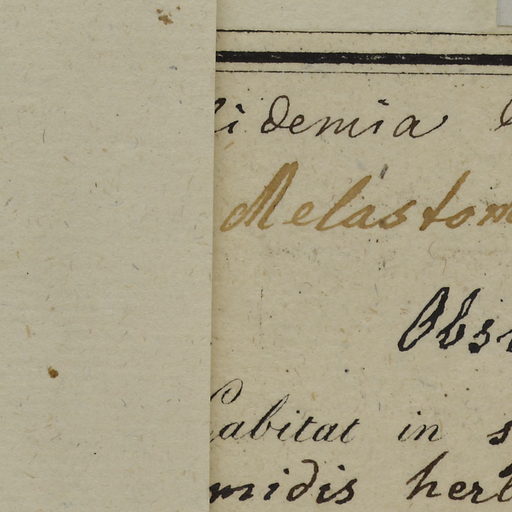 lidemia
Melastom
Obs
abitat in s
midis herb